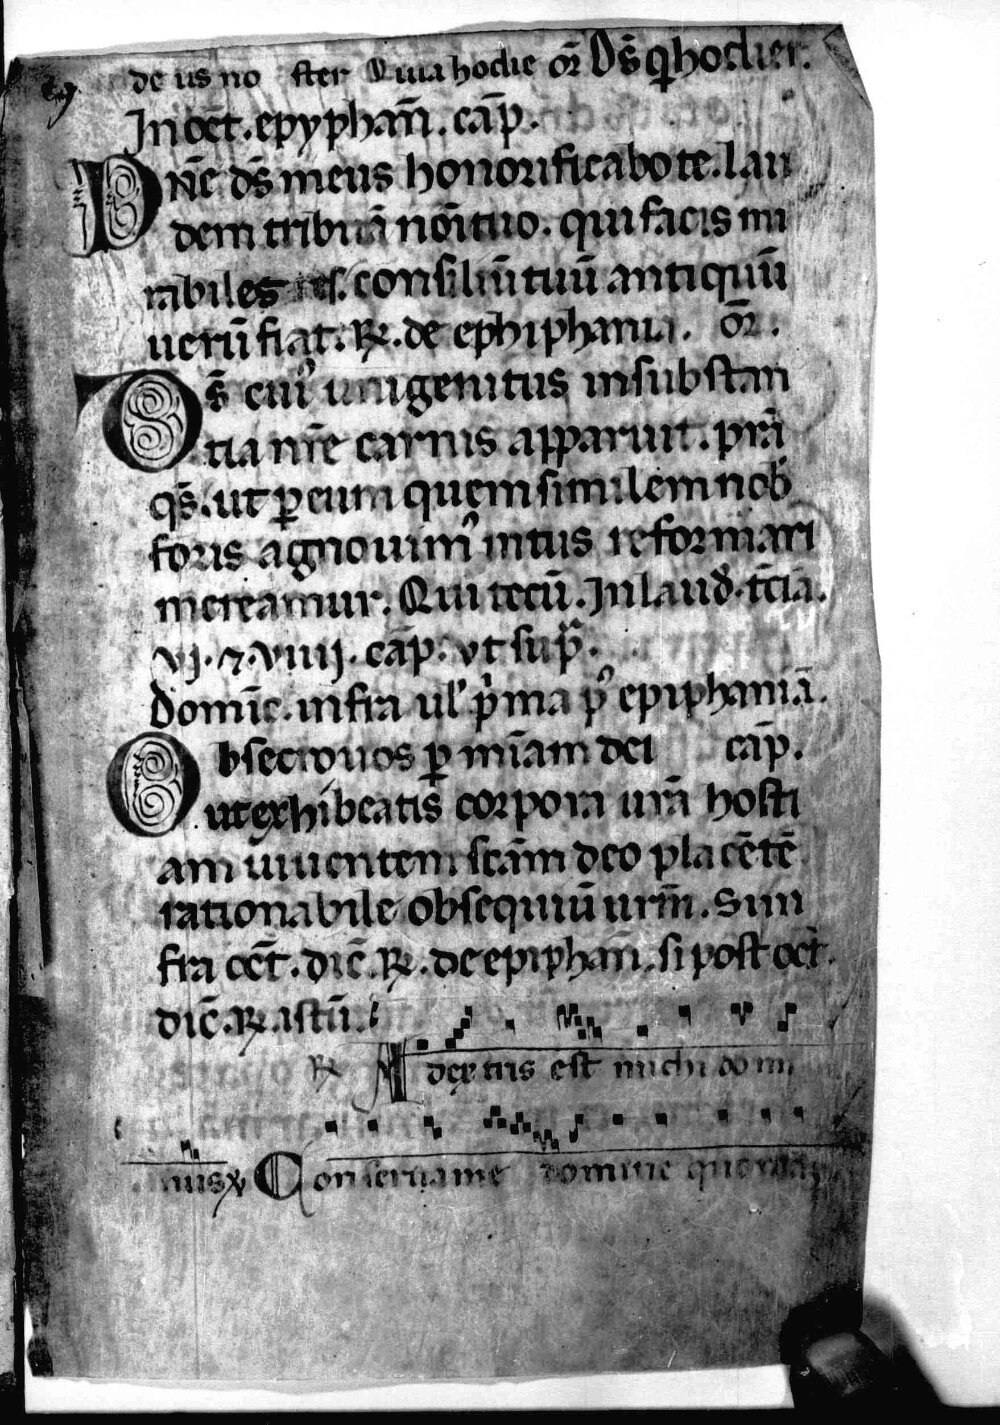 de us no ster Quia hodie or̄ Ds̄ q hodier.
In oct̄. epyphan̄. cap̄.
Dn̄e ds̄ meus honorificabo te. lau
dem tribuā noı̄ tuo. qui facis mi
rabiles res. consiliū tuū antiquū
uerū fiat. R̸. de ephiphania. or̄.
Ds̄ cuiꝰ unigenitus in substan
tia nr̄e carnis apparuit. pr̄a
qs̄. ut ꝑ eum quem similem nob̄
foris agnouimꝰ intus reformari
mereamur. Qui tecū. In laud̄. tc̄ia.
vj. ⁊. viiij. cap̄. vt sup̄.
Domīc. infra ul' p̓ma pꝰ epiphaniā.
Obsecro uos ꝑ mīam dei cap̄.
ut exhibeatis corpora ur̄a hosti
am uiuentem sc̄am deo placētē
rationabile obsequiū urm̄. Si in
fra oct̄. dic̄. R̸. de epiphan̄. si post oct̄.
dic̄. R̸. istū.
R̸ Adextris est michi domi
nus ℣ Conserua me domine quoniam